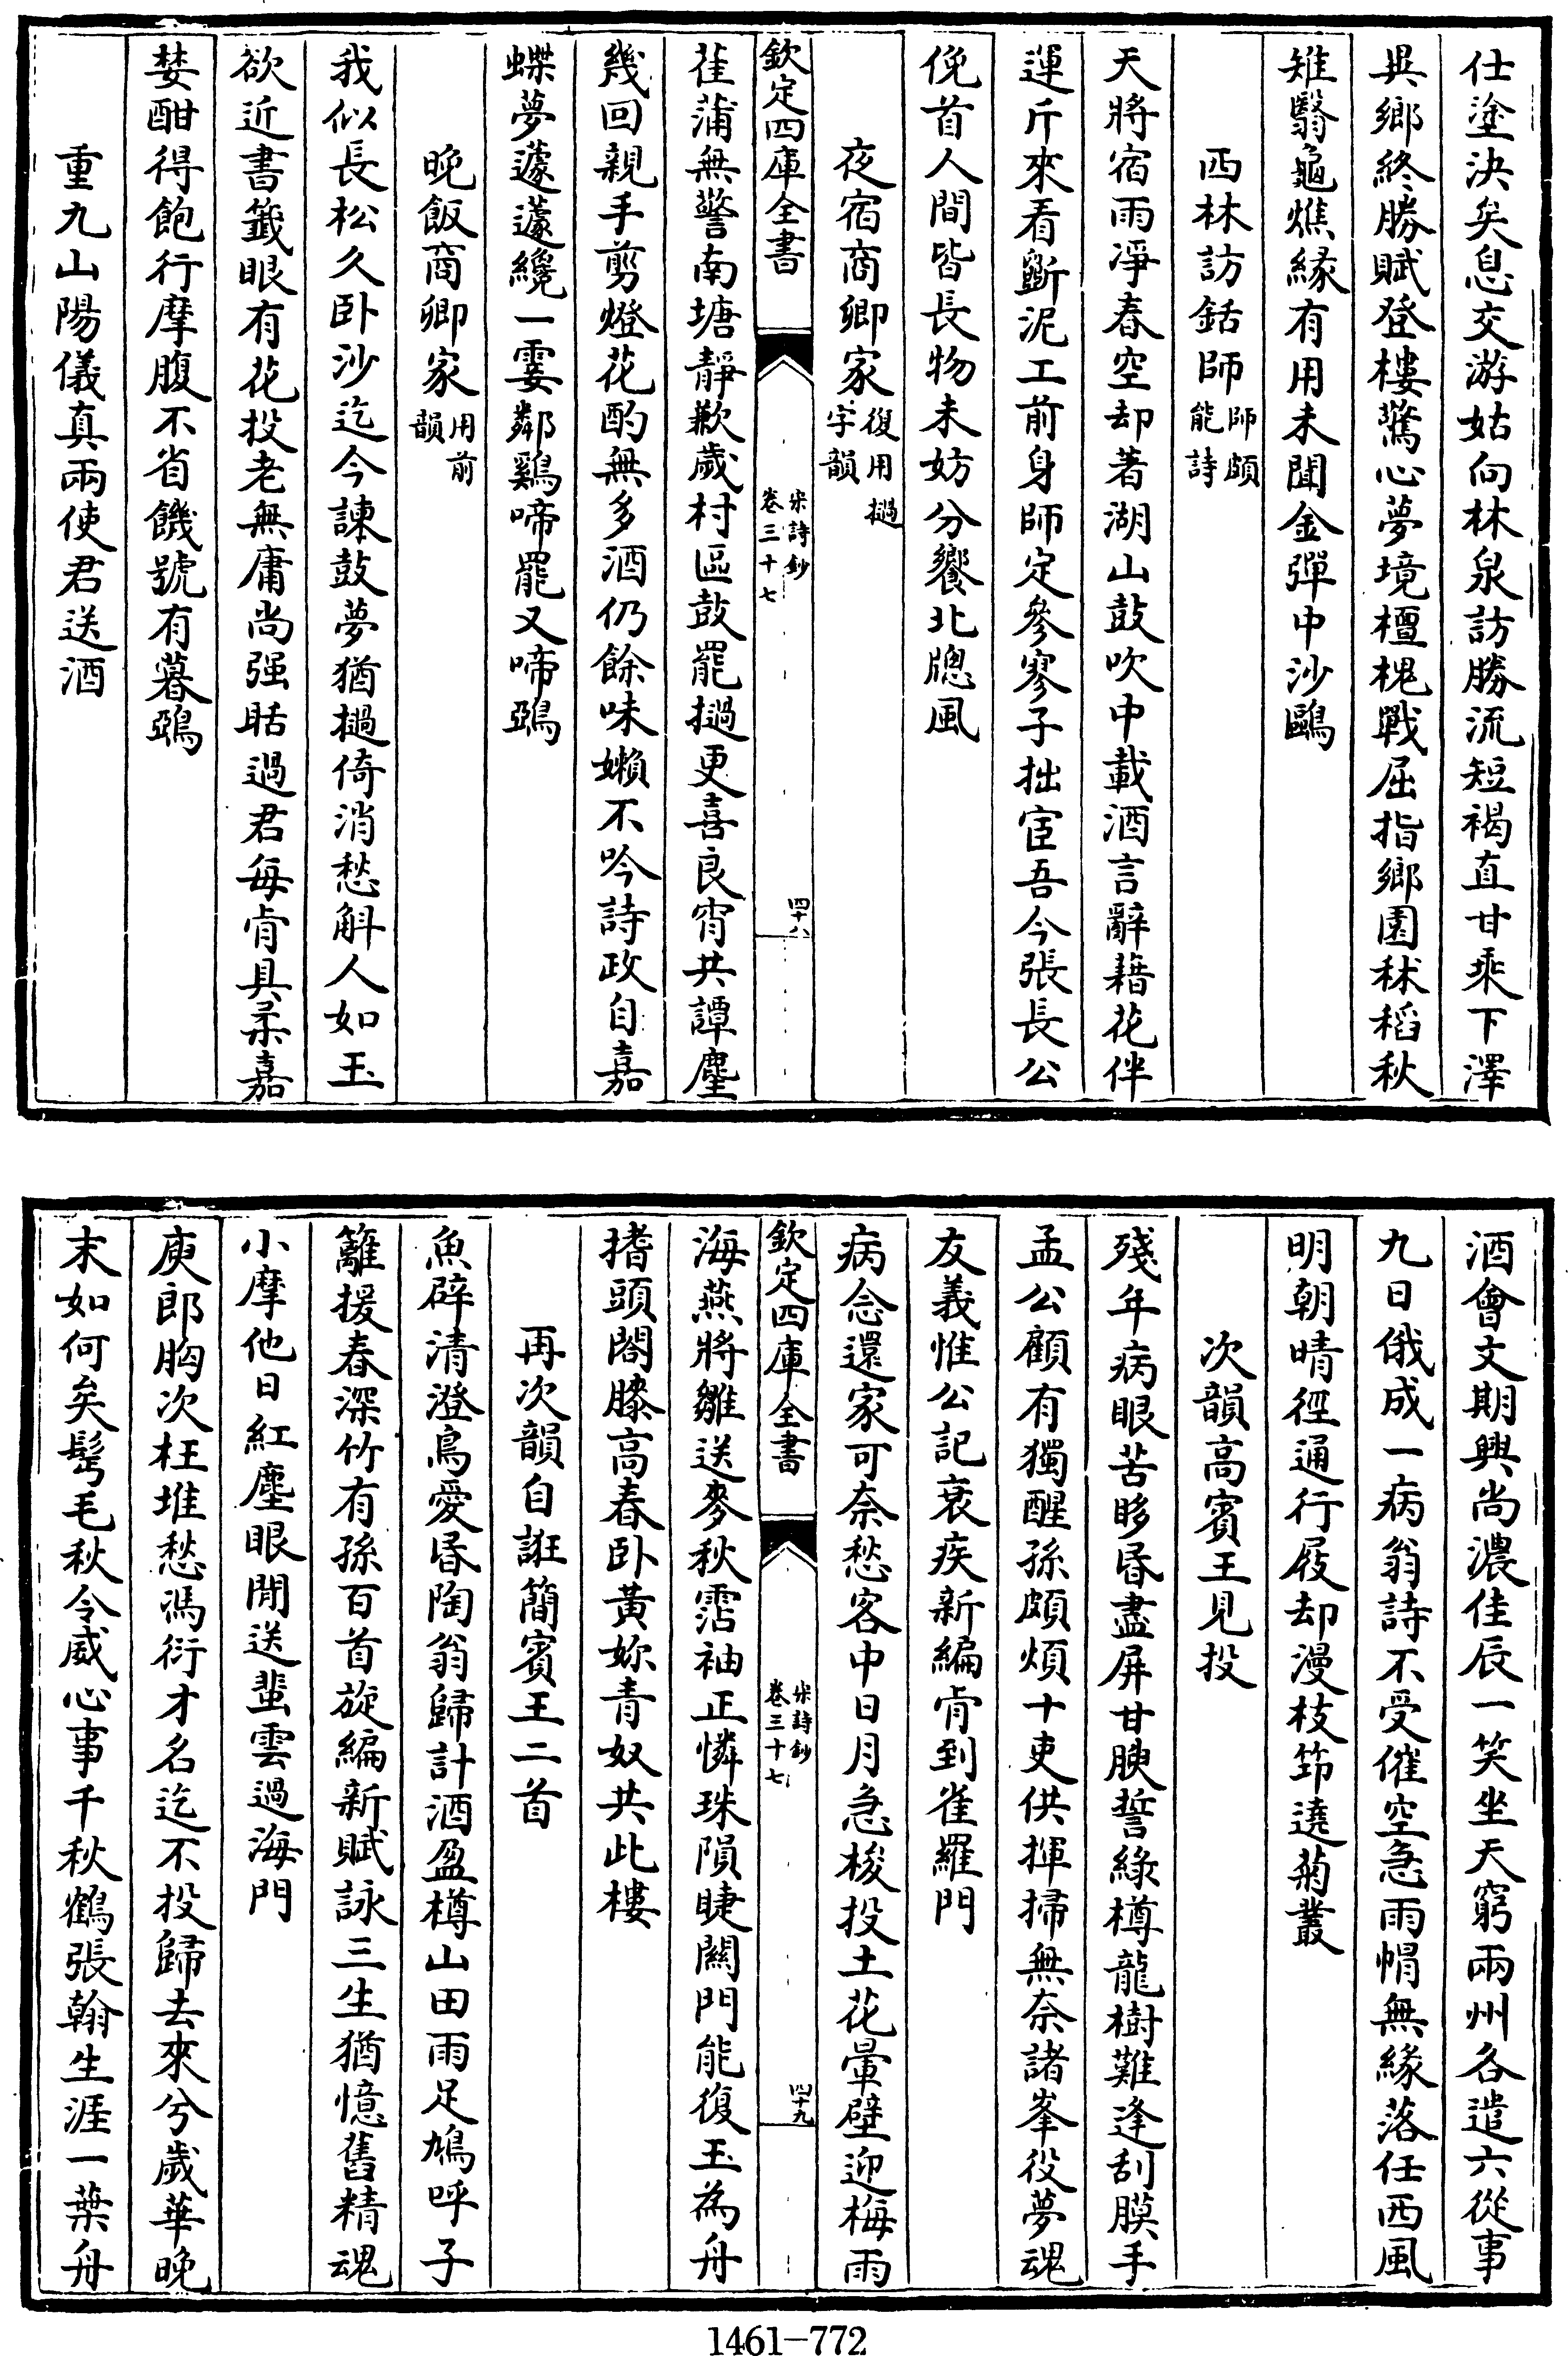 仕塗決矣息交游姑向林泉訪勝流短褐直甘乘下澤
異鄉終勝賦登樓驚心夢境檀槐戰屈指鄉園秫稻秋
雉翳龜燋緣有用未聞金彈中沙鷗
西林訪銛師師頗能詩
天將宿雨凈春空却著湖山鼓吹中載酒言辭藉花伴
運斤來看斵泥工前身師定參寥子拙宦吾今張長公
俛首人間皆長物未妨分饗北牕風
夜宿商卿家復用檛字韻
欽定四庫全書
宋詩鈔
卷三十七
四十八
萑蒲無警南塘靜歉歲村區鼓罷檛更喜良宵共譚麈
幾回親手剪燈花酌無多酒仍餘味嬾不吟詩政自嘉
蝶夢蘧蘧纔一霎鄰鷄啼罷又啼鵶
晚飯商卿家用前韻
我似長松久卧沙迄今諫鼓夢猶檛倚消愁斛人如玉
欲近書籤眼有花投老無庸尚强聒過君每肯具柔嘉
婪酣得飽行摩腹不省饑號有暮鵶
重九山陽儀真兩使君送酒
酒會文期興尚濃佳辰一笑坐天窮兩州各遣六從事
九日俄成一病翁詩不受催空急雨帽無緣落任西風
明朝晴徑通行屐却漫枝筇遶菊叢
次韻高賓王見投
殘年病眼苦眵昏盡屏甘腴誓綠樽龍樹難逢刮膜手
孟公顧有獨醒孫頗煩十吏供揮掃無奈諸峯役夢魂
友義惟公記衰疾新編肯到雀羅門
病念還家可奈愁客中日月急梭投土花暈壁迎梅雨
欽定四庫全書
宋詩鈔
卷三十七
四十九
海燕將雛送麥秋霑袖正憐珠隕睫闗門能復玉為舟
搘頭閣膝高舂卧黃妳青奴共此樓
再次韻自誑簡賓王二首
魚辟清澄鳥愛昏陶翁歸計酒盈樽山田雨足鳩呼子
籬援春深竹有孫百首旋編新賦詠三生猶憶舊精魂
小摩他日紅塵眼閒送蜚雲過海門
庾郎胸次枉堆愁馮衍才名迄不投歸去來兮歲華晚
末如何矣髩毛秋令威心事千秋鶴張翰生涯一葉舟
1461-772